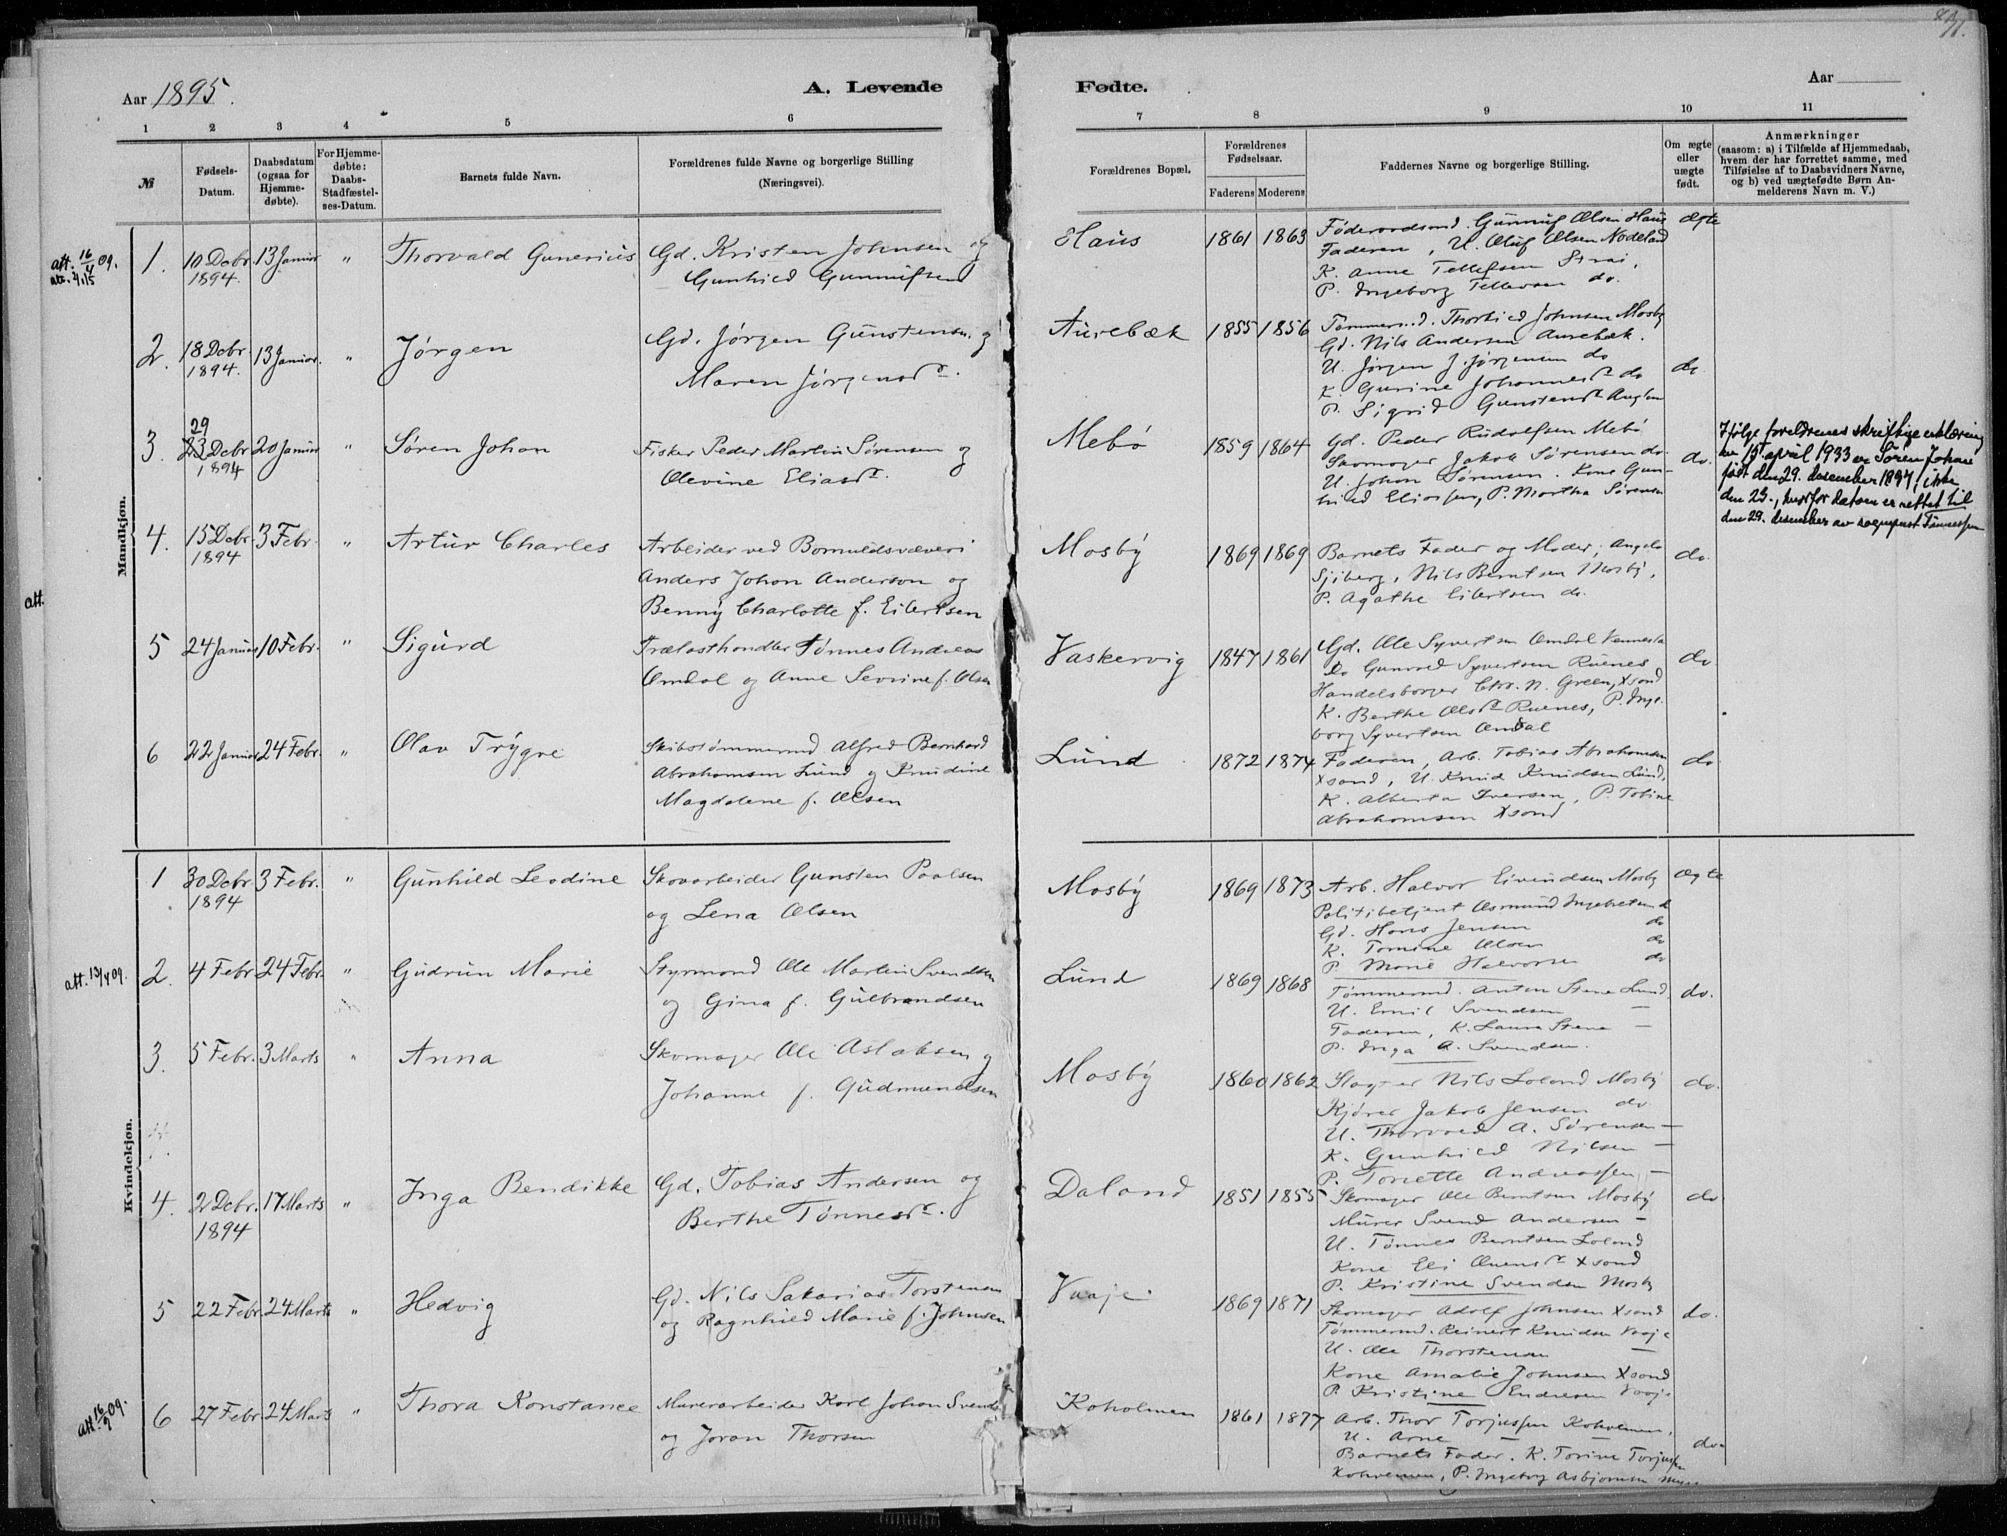 Aar 1895.
A. Levende
Fødte.
Aar
71.
1 2 3 4 5 6
7 8 9 10 11
№
Fødsels-
Datum.
Daabsdatum
(ogsaa for
Hjemme-
døbte).
For Hjemme-
døbte:
Daabs-
Stadfæstel-
ses-Datum.
Barnets fulde Navn.
Forældrenes fulde Navne og borgerlige Stilling
(Næringsvei).
Forældrenes Bopæl.
Forældrenes
Fødselsaar.
Faderens Moderens
Faddernes Navne og borgerlige Stilling.
Om ægte
eller
uægte
født.
Anmærkninger
(saasom: a) i Tilfælde af Hjemmedaab,
hvem der har forrettet samme, med
Tilføielse af to Daabsvidners Navne,
og b) ved uægtefødte Børn An-
melderens Navn m. V.)
Mandkjøn.
att. 16/4 09.
1. 10 Debr. 13 Januar " Thorvald Gunerius Gd. Kristen Johnsen og
1894. Gunhild Gunnufsen
Haus 1861 1863 Gunnuf Olsen Haus ægte
Faderen, U. Oluf Olsen Nodeland
K. Anne Tellefsen Strai,
P. Ingeborg Tellevsen do.
2. 18 Debr. 13 Januar. " Jørgen Gd. Jørgen Gunstensen og
1894. Maren Jørgensdr.
Aurebæk 1855 1856 Tømmermd. Thorbied Johnsen Mosby
Gd. Nils Andersen Aurebæk.
U. Jørgen J. Jørgensen do
K. Gurine Johannesdr do do
P. Sigrid Gunstensdr
29
3. 23 Debr 20 Januar " Søren Johan Fisker Peder Martin Sørensen og
1894 Olevine Eliasdr.
Mebø 1859 1864 Gd. Peder Rudolfsen Mebø
Skomager Jakob Sørensen do. do.
U. Johan Sørensen. Kone Gun-
hild Eliassen, P. Martha Sørensen
Ifølge foreldrenes skriftlige erklæring
av 15 april 1933 er Søren Johan
født den 29. desember 1894, ikke
den 23., hvorfor datoen er rettet til
den 29. desember av sogneprest Tønnessen
4. 15 Debr. 3 Febr. " Artur Charles Arbeider ved Bomuldsvæveri
1894 Anders Johan Anderson og
Benny Charlotte f. Eilertsen
Mosby 1869 1869 Barnets Fader og Moder, Angela do.
Sjøberg, Nils Berntsen Mosby,
P. Agathe Eilertsen do.
att.
5 24 Januar 10 Febr. " Sigurd Trælasthandler Tønnes Andreas
Omdal og Anne Severine f. Olsen
Vaskervig 1847 1861 Gd. Ole Syvertsen Omdal Vennesla do
Do Gunvald Syvertsen Ruenes
Handelsborger Chr. N. Green, Xsand
K. Berthe Olsdr Ruenes, P. Inge-
borg Syvertsen Omdal
6 22 Januar 24 Febr. " Olav Trygve Skibstømmermd Alfred Bernhard
Abrahamsen Lund og Knudine
Magdalene f. Olsen
Lund 1872 1874 Faderen, Arb. Tobias Abrahamsen do
Xsand, U. Knud Knudsen Lund,
K. Alberta Iversen, P. Tobine
Abrahamsen Xsand
Kvindekjøn.
1 30 Debr 3 Febr. " Gunhild Leodine Skovarbeider Gunsten Paalsen
1894 og Lena Olsen
Mosby 1869 1873 Arb. Halvor Eivindsen Mosby ægte
Politibetjent Osmund Ingebretsen do
Gd. Hans Jensen do
K. Tomine Olsen do
P. Marie Halvorsen do
att. 13/4 09.
2. 4 Febr. 24 Febr. " Gudrun Marie Styrmand Ole Martin Svendsen
og Gina f. Gulbrandsen
Lund 1869 1868 Tømmermd. Anton Stene Lund, do.
U. Emil Svendsen —
Faderen, K. Laura Stene —
P. Inga A. Svendsen.
3. 5 Febr. 3 Marts " Anna Skomager Ole Aslaksen og
Johanne f. Gudmundsen
Mosby 1860 1862 Slagter Nils Loland Mosby do.
Kjører Jakob Jensen do.
U. Thorvald A. Sørensen —
K. Gunhild Nilsen —
P. Tonette Andreassen —
4. 2 Debr. 17 Marts " Inga Bendikke Gd. Tobias Andersen og
1894 Berthe Tønnesdr.
Daland 1851 1855 Skomager Ole Berntsen Mosby do
Murer Svend Andersen —
U. Tønnes Berntsen Loland
Kone Eli Xsand
P. Kristine Svendsen Mosby
5 22 Febr. 24 Marts " Hedvig Gd. Nils Sakarias Torstensen
og Ragnhild Marie f. Johnsen
Vaaje. 1869 1871 Skomager Adolf Johnsen Xsand do.
Tømmermd. Reinert Knudsen Vaaje
U. Ole Thorstensen —
Kone Amalie Johnsen Xsand
P. Kristine Endresen Vaaje
att. 16/9 09.
6 27 Febr. 24 Marts " Thora Konstance Murerarbeider Karl Johan Svends
og Joran Thorsen
Koholmen 1861 1877 Arb. Thor Torjussen Koholmen, do.
U. Arne — —
Barnets Fader. K. Torine Torjussen
Koholmen, P. Ingeborg Asbjørnsen